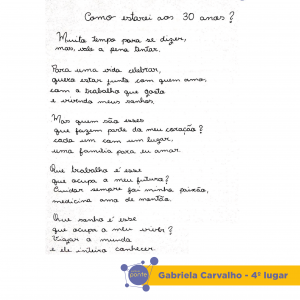 Como estarei aos 30 anos?
Muito tempo para se dizer,
mas, vale a pena tentar.
Para uma vida celebrar,
quero estar junto com quem amo,
com o trabalho que gosto
e vivendo meus sonhos.
Mas quem são esses
que fazem parte do meu coração?
cada um com um lugar,
uma família para eu amar.
Que trabalho é esse
que ocupa o meu futuro?
Cuidar sempre foi minha paixão,
medicina ama de
Que sonho é esse
que ocupa o meu viver?
Viajar o mundo
e ele inteiro conhecer
ponte
Gabriela Carvalho - 4º lugar